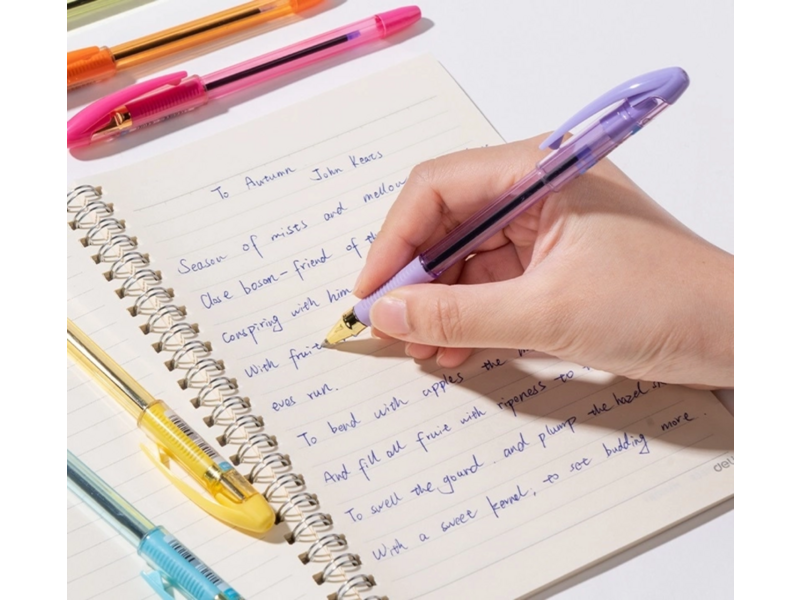 To Autumn John Keats
Season of mists and mellow
Close bosom-friend of th
Conspiring with him
With fruit
eves run.
To bend with apples the
And fill all fruit with ripeness to
To swell the gourd. and plump the hazel sh
With a sweet kernel, to set budding more.
deli